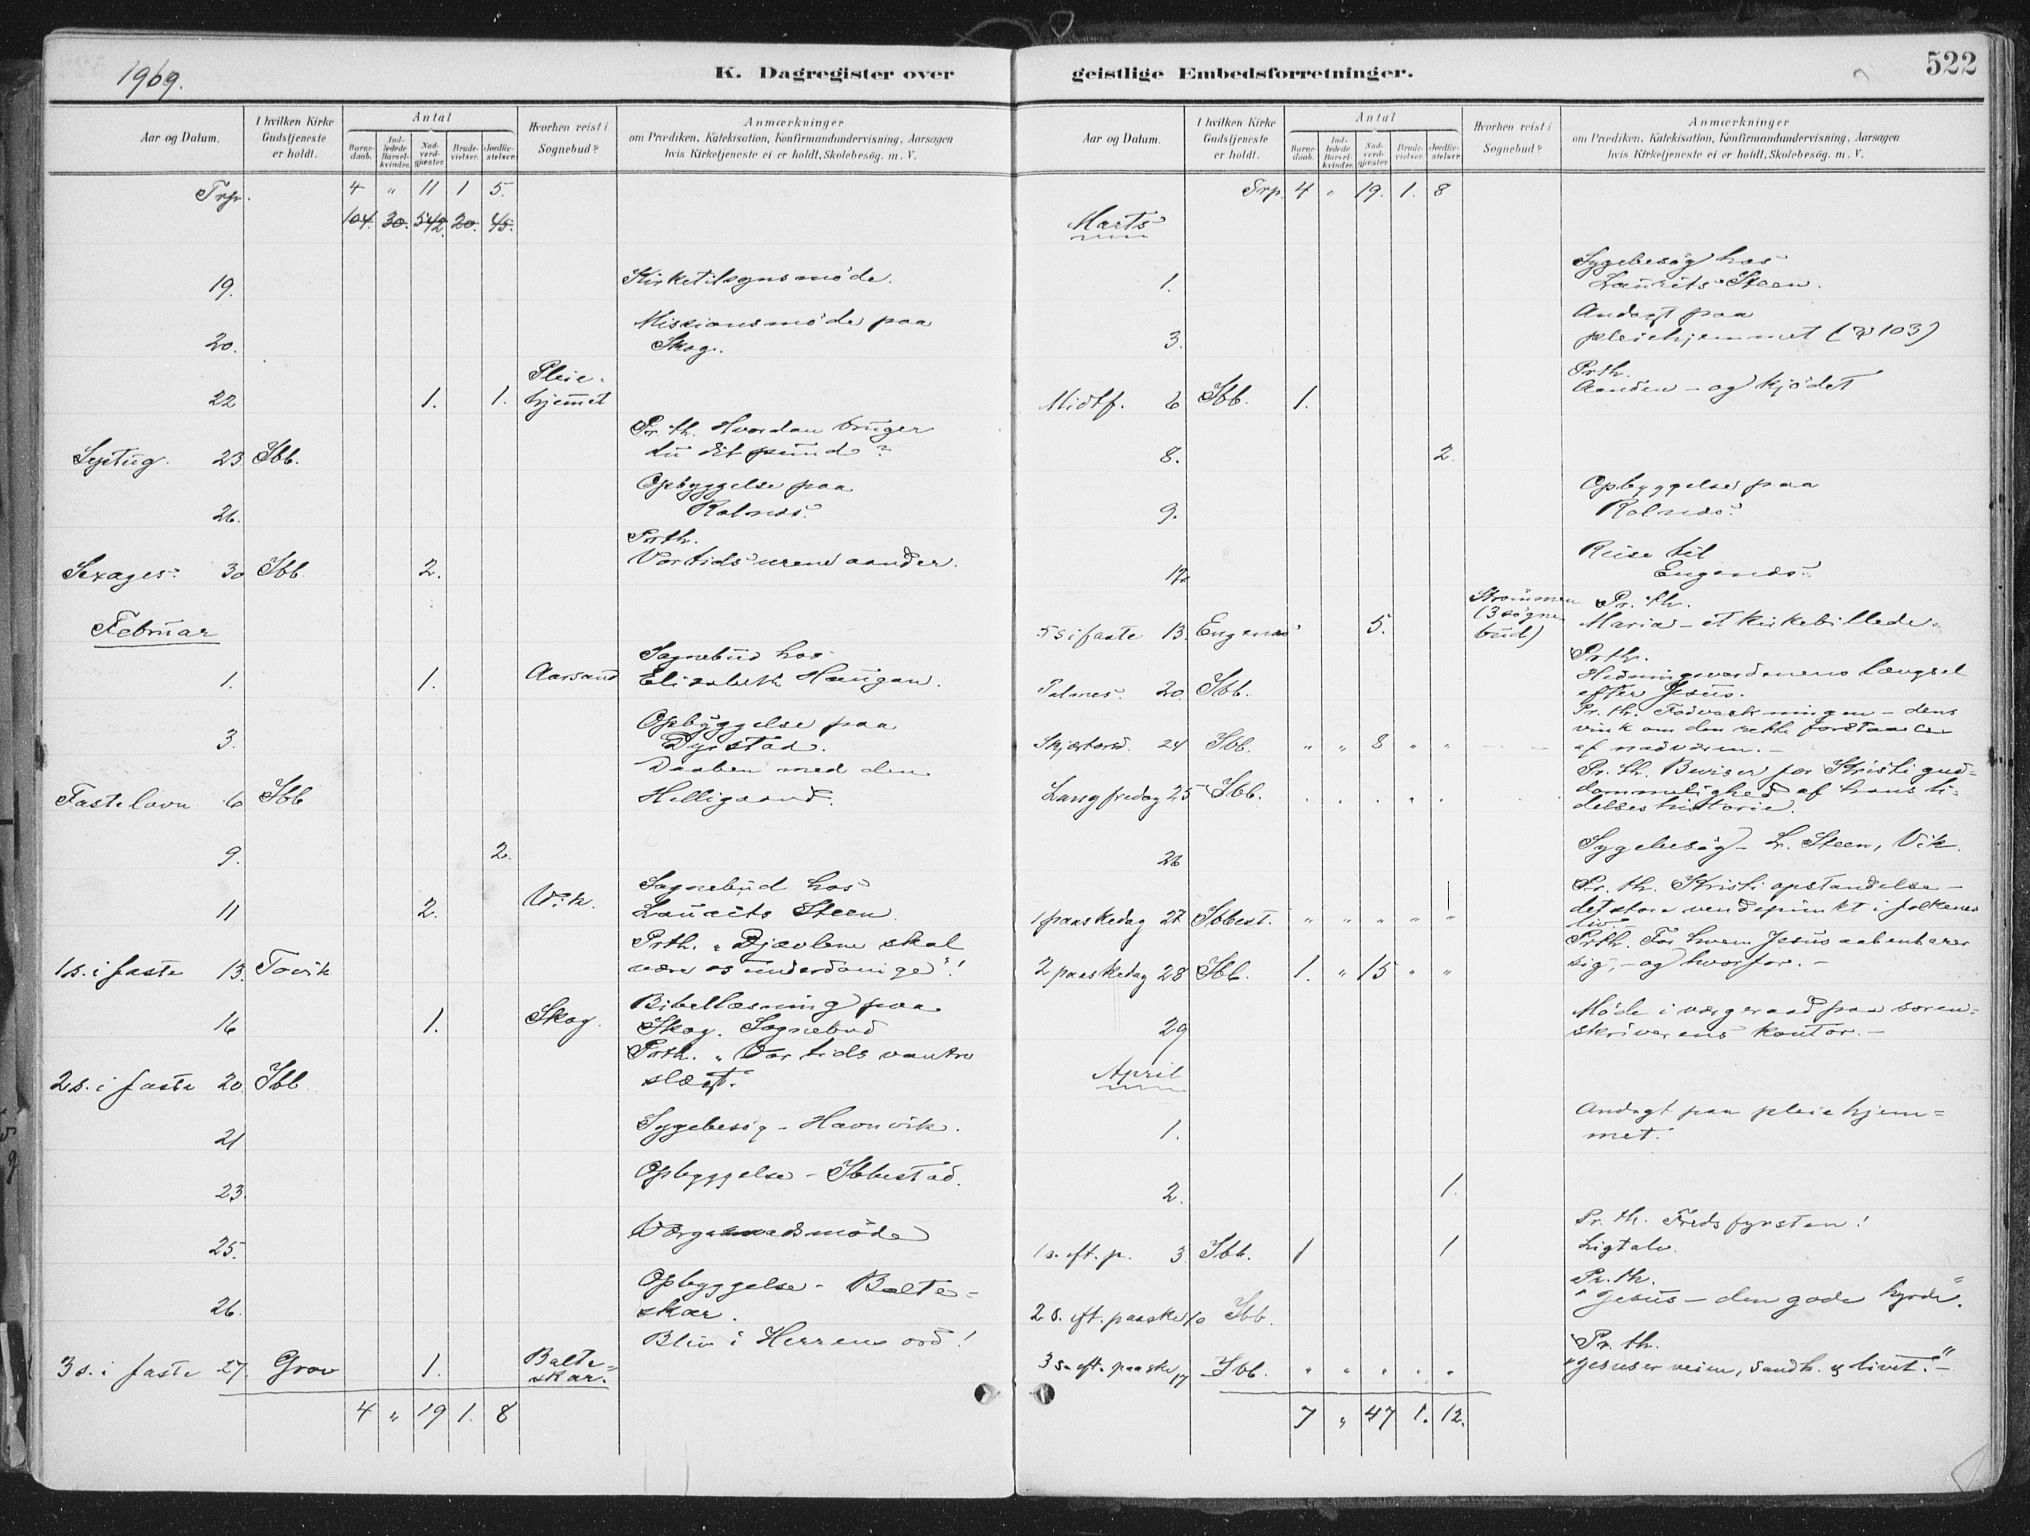 1969.
K. Dagregister over
Aar og Datum.
I hvilken Kirke Gudstjeneste er holdt.
Antal
Barne-daab.
Ind-ledede Barsel-kvinder.
Nad-verd-gjæster.
Brude-vielser.
Jordfæ-stelser.
Hvorhen reist i Sognebud?
Anmærkninger
om Prædiken, Katekisation, Konfirmandundervisning, Aarsagen
hvis Kirketjeneste ei er holdt, Skolebesøg. m. V.
Trp. 4 " 11 1 5.
104. 30. 542. 20. 45.
19. Kirketilsynsmøde.
20. Missionsmøde paa
Skog.
22 1. 1. Pleie-
hjemmet
Septug. 23 Ibb. Pr. th. Hvordan bruger
du dit pund?
26. Opbyggelse paa
Rolnæs.
Sexages. 30 Ibb 2. Prth.
Vor tids urene aander.
Februar
1. 1. Aarsand Sognebud hos
Elisabeth Haugan.
3. Opbyggelse paa
Dyrstad.
Fastelavn 6 Ibb Daaben med den
Helligaand.
9. 2.
11 2. Vik. Sognebud hos
Laurits Steen.
1 s. i faste 13. Tovik Prth. "Djævlene skal
være os underdanige"!
16 1. Skog. Bibellæsning paa
Skog. Sognebud
2 s. i faste 20. Ibb. Prth. "Vor tids vantro
slægt."
21 Sygebesøg - Havnvik.
23. Opbyggelse - Ibbestad.
25. Værgeraadsmøde
26. Opbyggelse - Balte-
skar.
3 s. i faste 27. Grov 1. Balte-
skar. Bliv i Herrens ord!
4 " 19 1. 8
geistlige Embedsforretninger.
522
Aar og Datum.
I hvilken Kirke Gudstjeneste er holdt.
Antal
Barne-daab.
Ind-ledede Barsel-kvinder.
Nad-verd-gjæster.
Brude-vielser.
Jordfæ-stelser.
Hvorhen reist i Sognebud?
Anmærkninger
om Prædiken, Katekisation, Konfirmandundervisning, Aarsagen
hvis Kirketjeneste ei er holdt, Skolebesøg. m. V.
Trp. 4 " 19. 1. 8
Marts
1. Sygebesøg hos
Laurits Steen.
3. Andagt paa
pleiehjemmet (103)
Midtf. 6 Ibb. 1. Prth.
Aanden - og kjødet
8. 2.
9. Opbyggelse paa
Rolnæs.
12. Reise til
Engenæs.
5 s i faste 13. Engenæs 5. Strømmen
(3 sogne-
bud) Pr. th.
Maria - et kirkebillede.
Palmes. 20. Ibb. Prth.
Hedningeverdenens længsel
efter Jesus.
Skjærtorsd. 24 Ibb. " " 8 " " Pr. th. Fodvaskningen - dens
vink om den rette forstaaelse
af nadveren. -
Langfredag 25 Ibb. Pr. th. Beviser for Kristi gud-
dommelighed af hans li-
delseshistorie.
26 Sygebesøg - L. Steen, Vik.
1 paaskedag 27 Ibbest. " " " " " Pr. th. Kristi opstandelse -
det store vendepunkt i folkenes
liv. -
2 paaskedag 28 Ibb. 1. " 15 " " Prth. For hvem Jesus aabenbarer
sig, - og hvorfor. -
29 Møde i værgeraad paa soren-
skriverens kontor. -
April
1. Andagt paa pleiehjem-
met.
2. 1.
1 s. eft. p. 3 Ibb. 1 1 Pr. th. Fredsfyrsten!
Ligtale.
2 s. eft. paaske 10 Ibb. Pr. th.
"Jesus - den gode hyrde".
3 s. eft. paaske 17 Ibb. " " " " " Pr. th.
"Jesus er veien, sandh. og livet." -
7 " 47 1. 12.